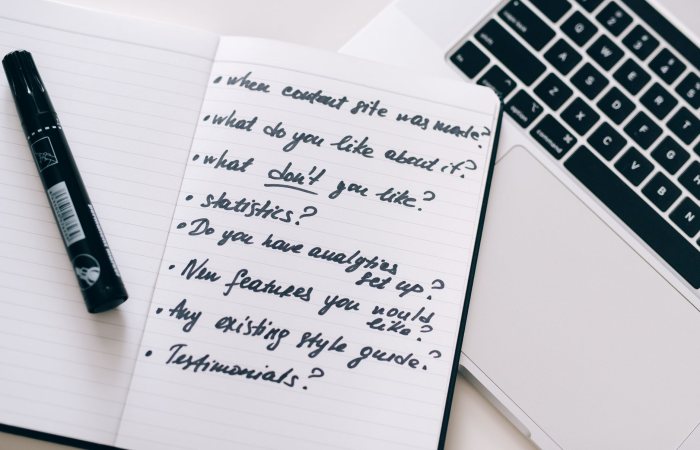 • when content site was made?
• what do you like about it?
• what don't you like?
• statistics?
• Do you have analytics
set up?
• New features you would
like?
• Any existing style guide?
• Testimonials?
Q W E R
A S D F G
Z X C V B N
option command